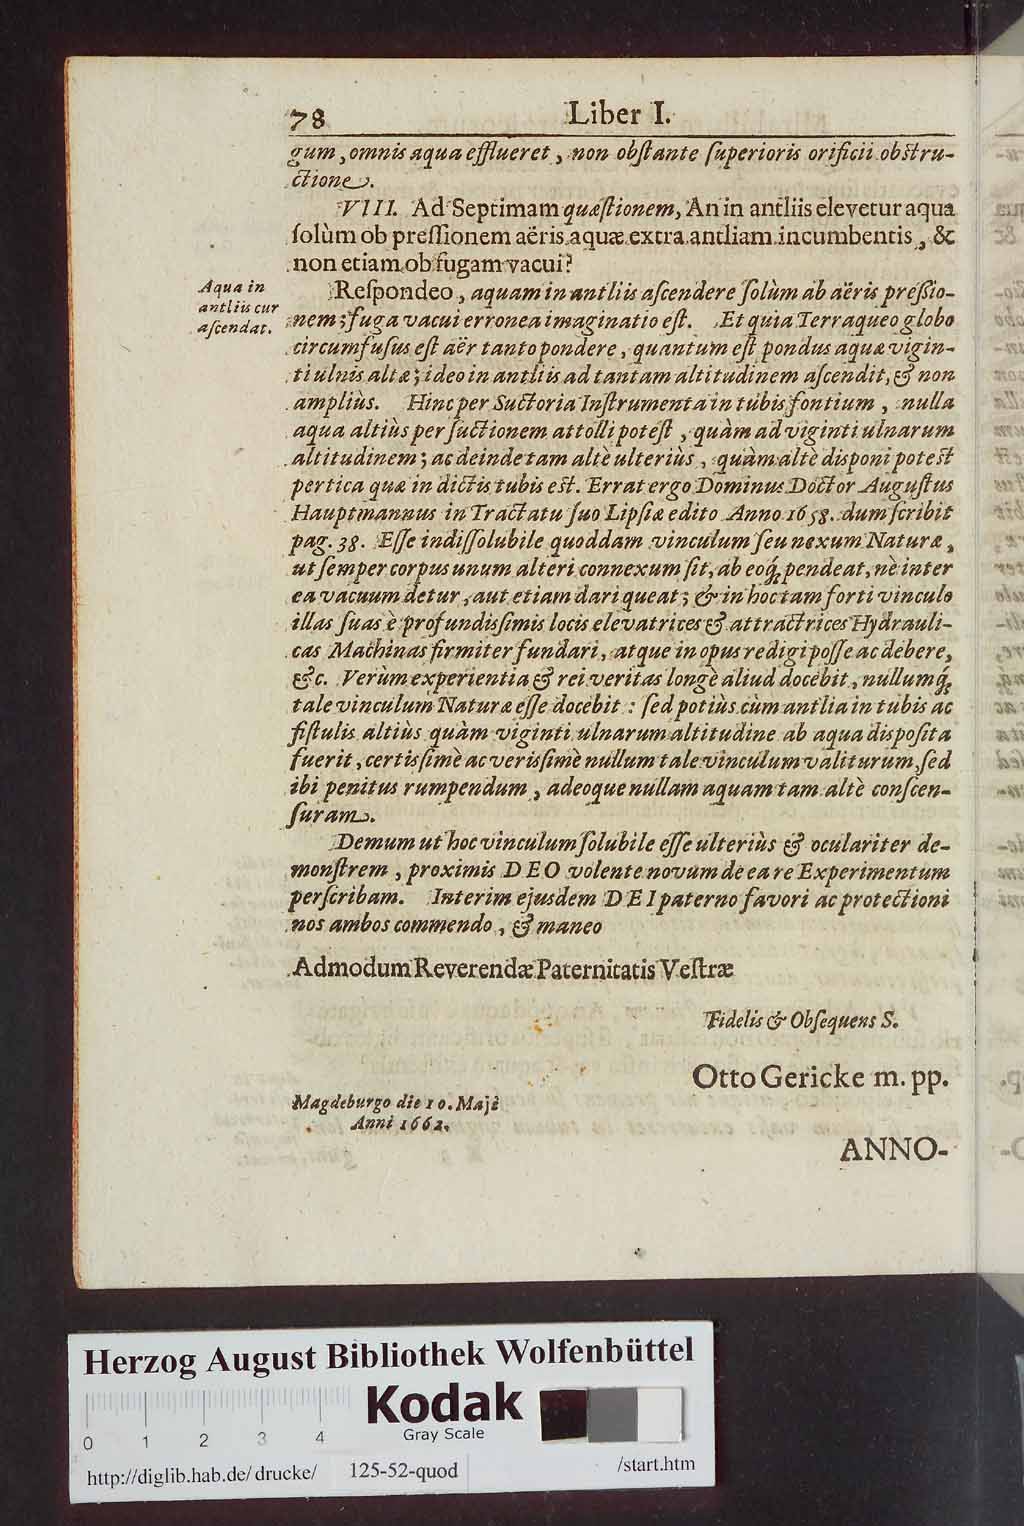 78 Liber I.
gum, omnis aqua efflueret, non obſtante ſuperioris orificii obſtru-
ctione.
VIII. Ad Septimam quæſtionem, An in antliis elevetur aqua
ſolùm ob preſſionem aëris aquæ extra antliam incumbentis, &
non etiam ob fugam vacui?
Aqua in
antliis cur
aſcendat.
Reſpondeo, aquam in antliis aſcendere ſolùm ab aëris preſsio-
nem; fuga vacui erronea imaginatio eſt. Et quia Terraqueo globo
circumfuſus eſt aër tanto pondere, quantum eſt pondus aquæ vigin-
ti ulnis altæ; ideo in antliis ad tantam altitudinem aſcendit, & non
ampliùs. Hinc per Suctoria Inſtrumenta in tubis fontium, nulla
aqua altiùs per ſuctionem attolli poteſt, quàm ad viginti ulnarum
altitudinem; ac deinde tam altè ulteriùs, quàm altè disponi poteſt
pertica quæ in dictis tubis eſt. Errat ergo Dominus Doctor Auguſtus
Hauptmannus in Tractatu ſuo Lipſiæ edito Anno 1658. dum ſcribit
pag. 38. Eſſe indiſſolubile quoddam vinculum ſeu nexum Naturæ,
ut ſemper corpus unum alteri connexum ſit, ab eoq́; pendeat, nè inter
ea vacuum detur, aut etiam dari queat; & in hoc tam forti vinculo
illas ſuas è profundisſimis locis elevatrices & attractrices Hydrauli-
cas Machinas firmiter fundari, atque in opus redigi poſſe ac debere,
&c. Verùm experientia & rei veritas longè aliud docebit, nullumq́;
tale vinculum Naturæ eſſe docebit: ſed potiùs cùm antlia in tubis ac
fiſtulis altiùs quàm viginti ulnarum altitudine ab aqua dispoſita
fuerit, certisſimè ac verisſimè nullum tale vinculum valiturum, ſed
ibi penitus rumpendum, adeoque nullam aquam tam altè conſcen-
ſuram.
Demum ut hoc vinculum ſolubile eſſe ulteriùs & oculariter de-
monſtrem, proximis DEO volente novum de ea re Experimentum
perſcribam. Interim ejusdem DEI paterno favori ac protectioni
nos ambos commendo, & maneo
Admodum Reverendæ Paternitatis Veſtræ
Fidelis & Obſequens S.
Otto Gericke m. pp.
Magdeburgo die 10. Maji
Anni 1662.
ANNO-
Herzog August Bibliothek Wolfenbüttel
Kodak
Gray Scale
0 1 2 3 4
http://diglib.hab.de/drucke/ 125-52-quod /start.htm